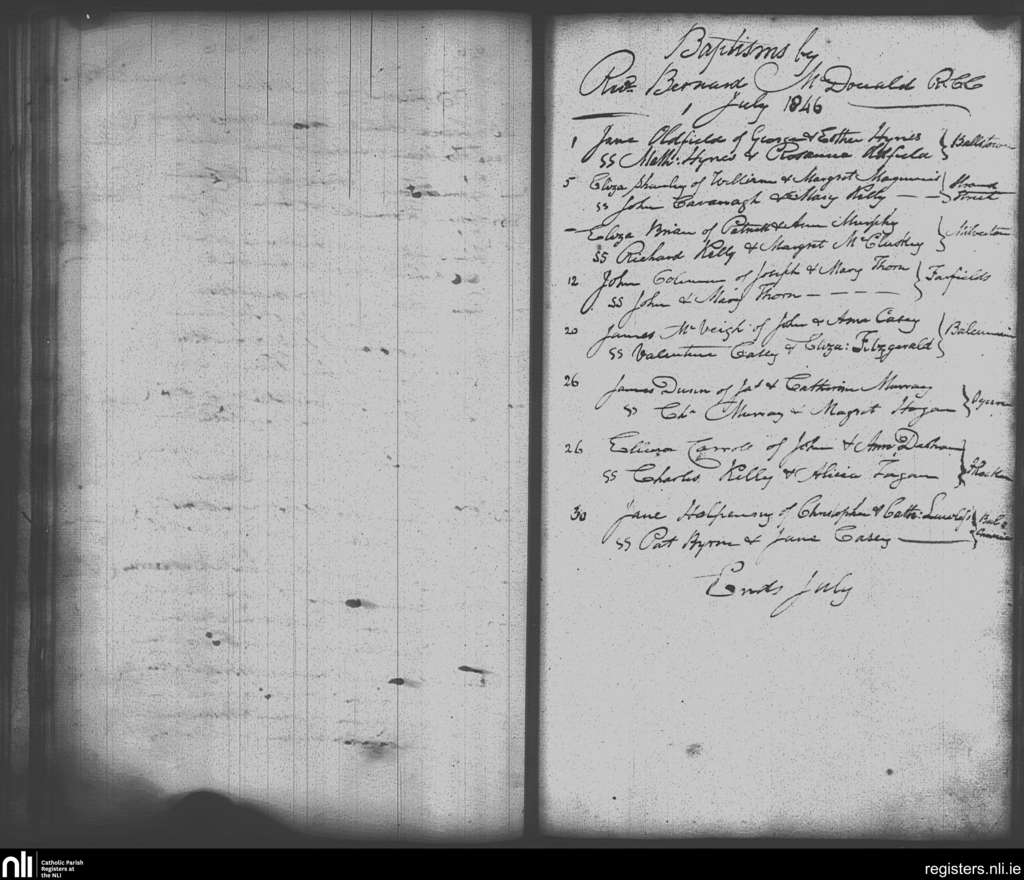 Baptisms by
Revd. Bernard McDonald RCC
July 1846
1 Jane Oldfield of George & Esther Hynes
SS Math: Hynes & Rosanna Oldfield
5 Eliza of William & Margret
Strand Street
SS John Cavanagh & Mary Kelly
Eliza Brien of Patrick & Ann Murphy
Milverton
SS Richard Kelly & Margret McCluskey
12 John of Joseph & Mary Thorn
SS John & Mary Thorn
20 James McVeigh of John & Ann Casey
SS Valentine Casey & Eliza: Fitzgerald
26 James Dunn of Jas & Catherine Murray
SS Murray & Magret Hogan
26 Carroll of John & Ann
SS Charles Kelly & Alicia Fagan
30 Jane Halpenny of Christopher & Cath: Lawless
SS Pat Byrne & Jane Casey
Ends July
nli
Catholic Parish
Registers at
the NLI
registers.nli.ie